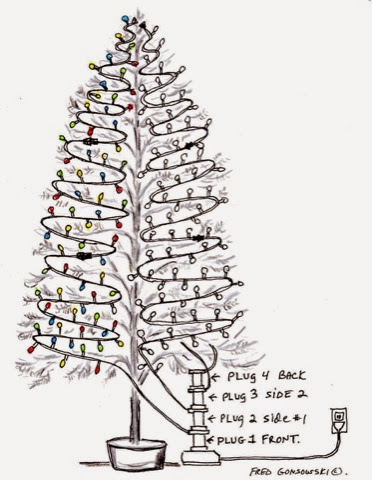 ← PLUG 4 BACK
← PLUG 3 SIDE 2
← PLUG 2 SIDE #1
← PLUG 1 FRONT.
FRED GONSOWSKI©.